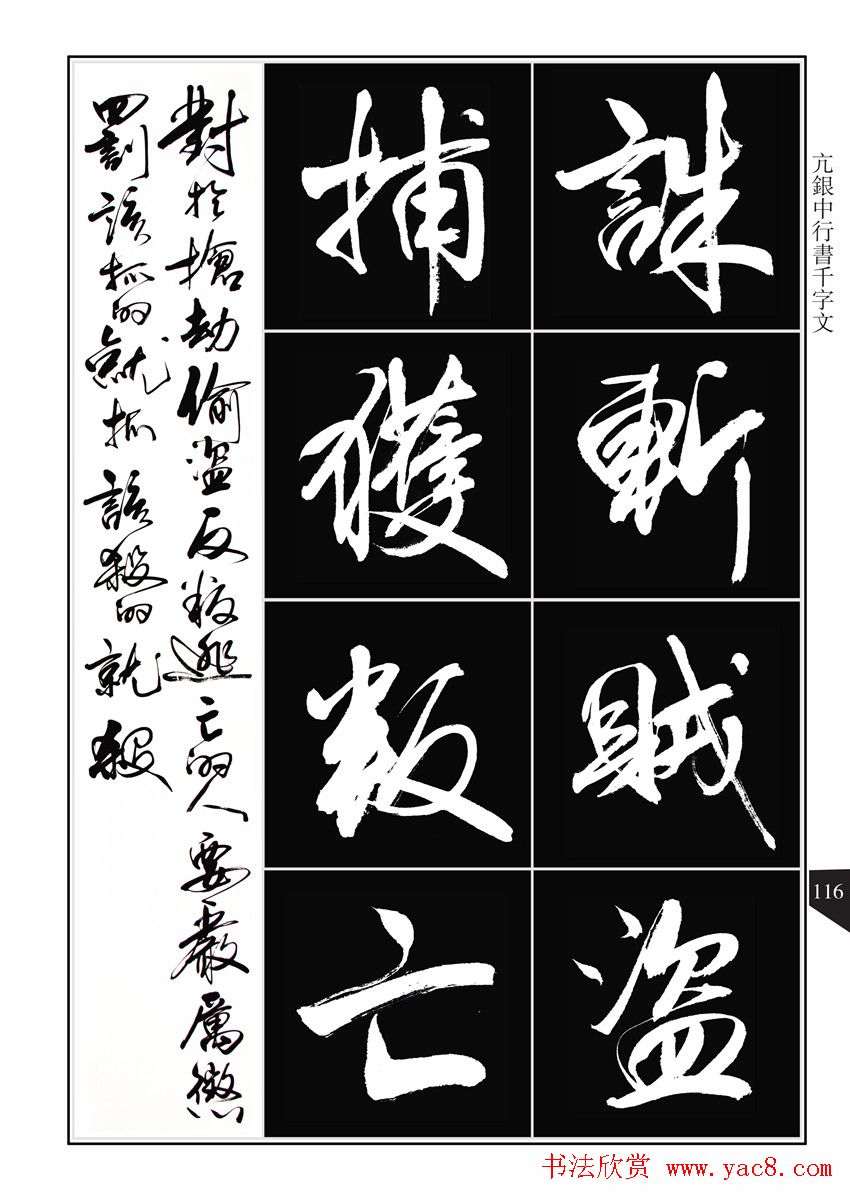 亢銀中行書千字文
誅斬賊盜
捕獲叛亡
對於搶劫偷盜反叛逃亡的人要嚴厲懲
罰該抓的就抓該殺的就殺
116
书法欣赏 www.yac8.com